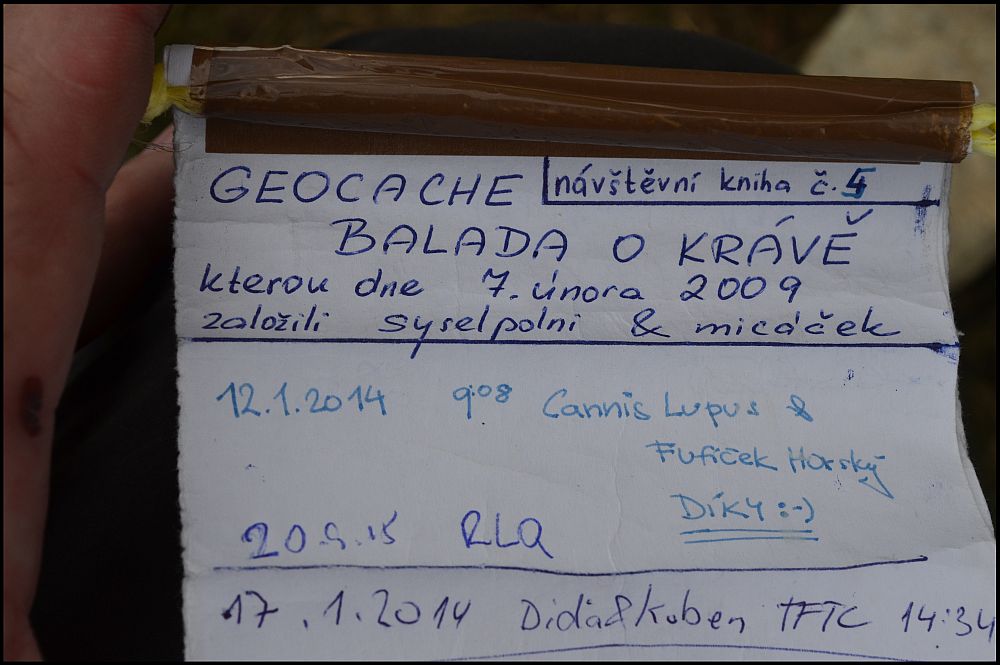 GEOCACHE návštěvní kniha č.
BALADA O KRÁVĚ
kterou dne 7. února 2009
založili syselpolni & micáček
12.1.2014 9:08 Cannis Lupus &
Fufíček Horský
DÍKY :-)
RLQ
17.1.2014 Didi&Kuben TFTC 14:34